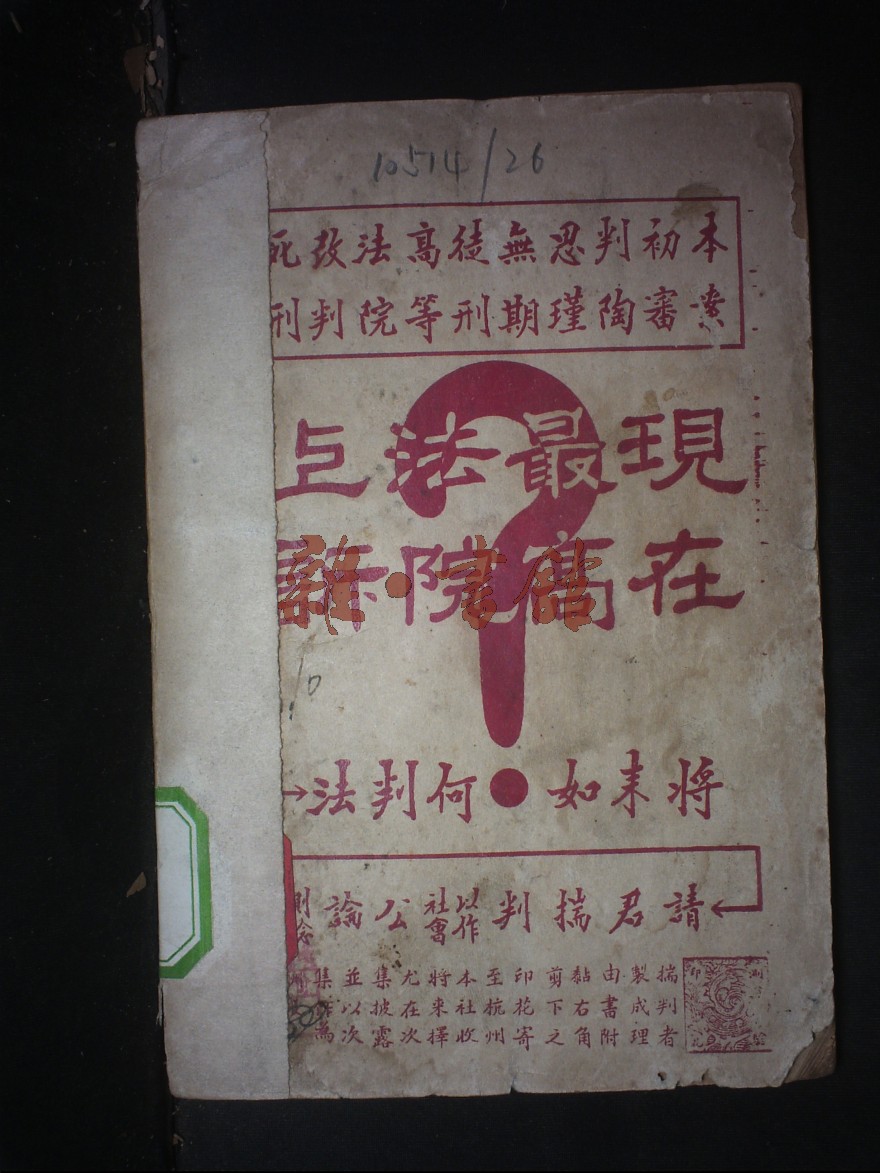 10514/26
本案初審判陶思瑾無期徒刑高等法院改判死刑
現在最高法院上訴
將來如何判法→
←請君揣判以作社會公論
揣判者製成理由書附黏右角剪下之印花寄至杭州本社收將來擇尤在次集披露並以次集為
雜·書館